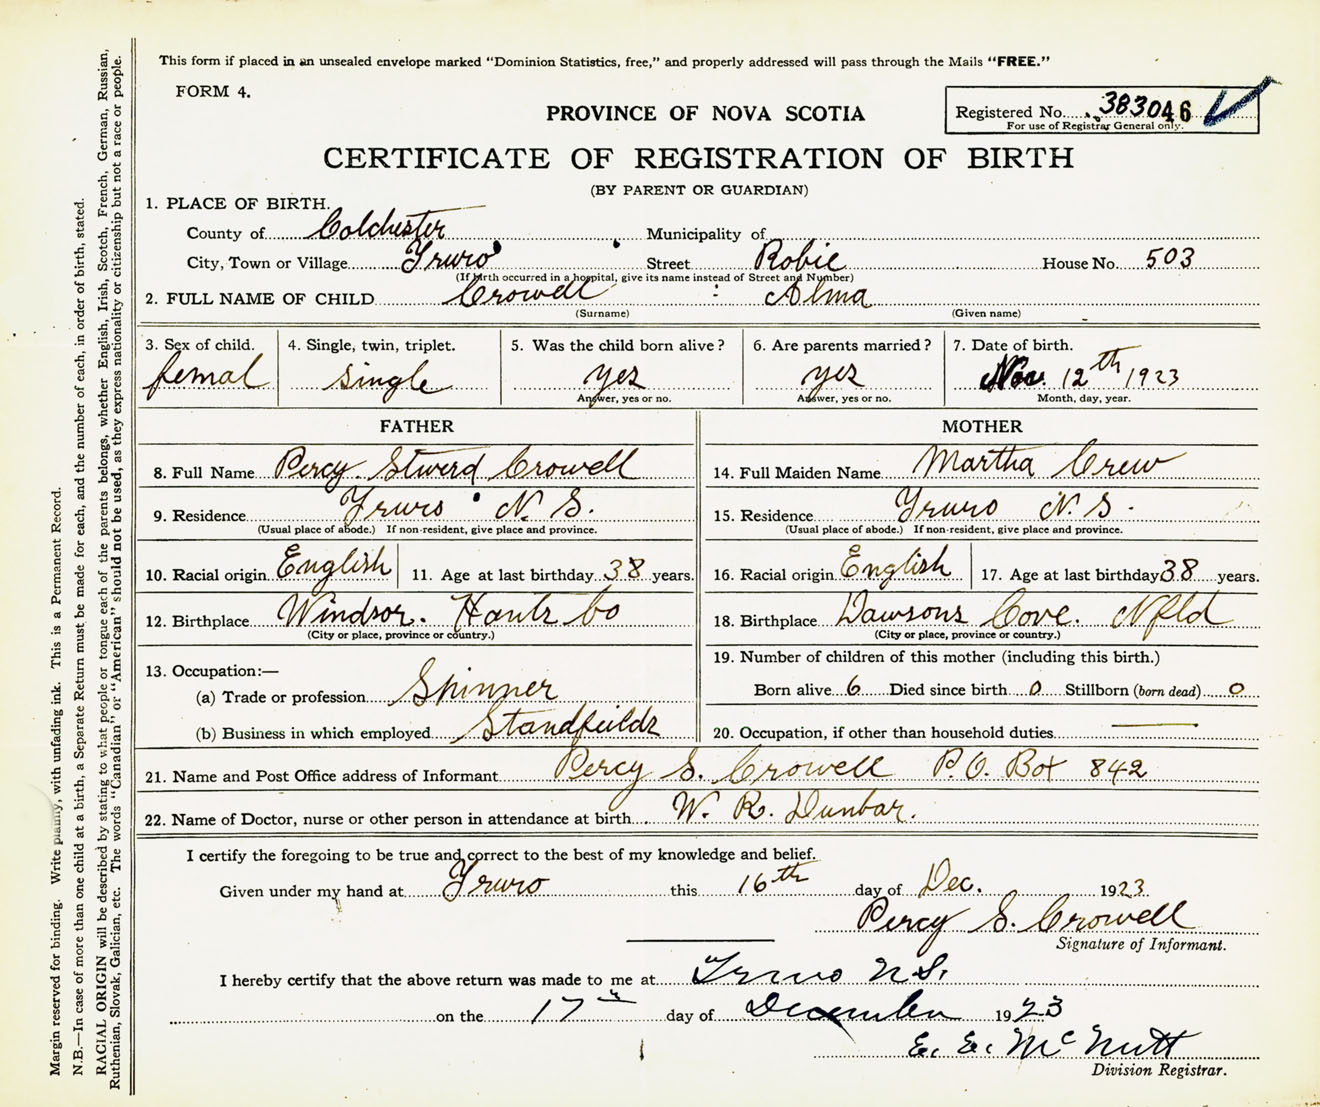 This form if placed in an unsealed envelope marked "Dominion Statistics, free," and properly addressed will pass through the Mails "FREE."
FORM 4.
PROVINCE OF NOVA SCOTIA
Registered No. 383046
For use of Registrar General only.
CERTIFICATE OF REGISTRATION OF BIRTH
(BY PARENT OR GUARDIAN)
1. PLACE OF BIRTH.
County of Colchester Municipality of
City, Town or Village Truro Street Robie House No. 503
(If birth occurred in a hospital, give its name instead of Street and Number)
2. FULL NAME OF CHILD Crowell : Alma
(Surname) (Given name)
3. Sex of child. 4. Single, twin, triplet. 5. Was the child born alive? 6. Are parents married? 7. Date of birth.
femal single yes yes Nov. 12th 1923
Answer, yes or no. Answer, yes or no. Month, day, year.
FATHER MOTHER
8. Full Name Percy Stwerd Crowell 14. Full Maiden Name Martha Crew
9. Residence Truro N. S. 15. Residence Truro N. S.
(Usual place of abode.) If non-resident, give place and province. (Usual place of abode.) If non-resident, give place and province.
10. Racial origin English 11. Age at last birthday 38 years. 16. Racial origin English 17. Age at last birthday 38 years.
12. Birthplace Windsor. Hants Co 18. Birthplace Dawsons Cove. Nfld
(City or place, province or country.) (City or place, province or country.)
13. Occupation:— 19. Number of children of this mother (including this birth.)
(a) Trade or profession Spinner Born alive 6 Died since birth 0 Stillborn (born dead) 0
(b) Business in which employed Standfields 20. Occupation, if other than household duties —
21. Name and Post Office address of Informant Percy S. Crowell P.O. Box 842
22. Name of Doctor, nurse or other person in attendance at birth W. R. Dunbar.
I certify the foregoing to be true and correct to the best of my knowledge and belief.
Given under my hand at Truro this 16th day of Dec. 1923
Percy S. Crowell
Signature of Informant.
I hereby certify that the above return was made to me at Truro N.S.
on the 17th day of December 1923
E. E. McNutt
Division Registrar.
Margin reserved for binding. Write plainly, with unfading ink. This is a Permanent Record.
N.B.—In case of more than one child at a birth, a Separate Return must be made for each, and the number of each, in order of birth, stated.
RACIAL ORIGIN will be described by stating to what people or tongue each of the parents belongs, whether English, Irish, Scotch, French, German, Russian,
Ruthenian, Slovak, Galician, etc. The words "Canadian" or "American" should not be used, as they express nationality or citizenship but not a race or people.